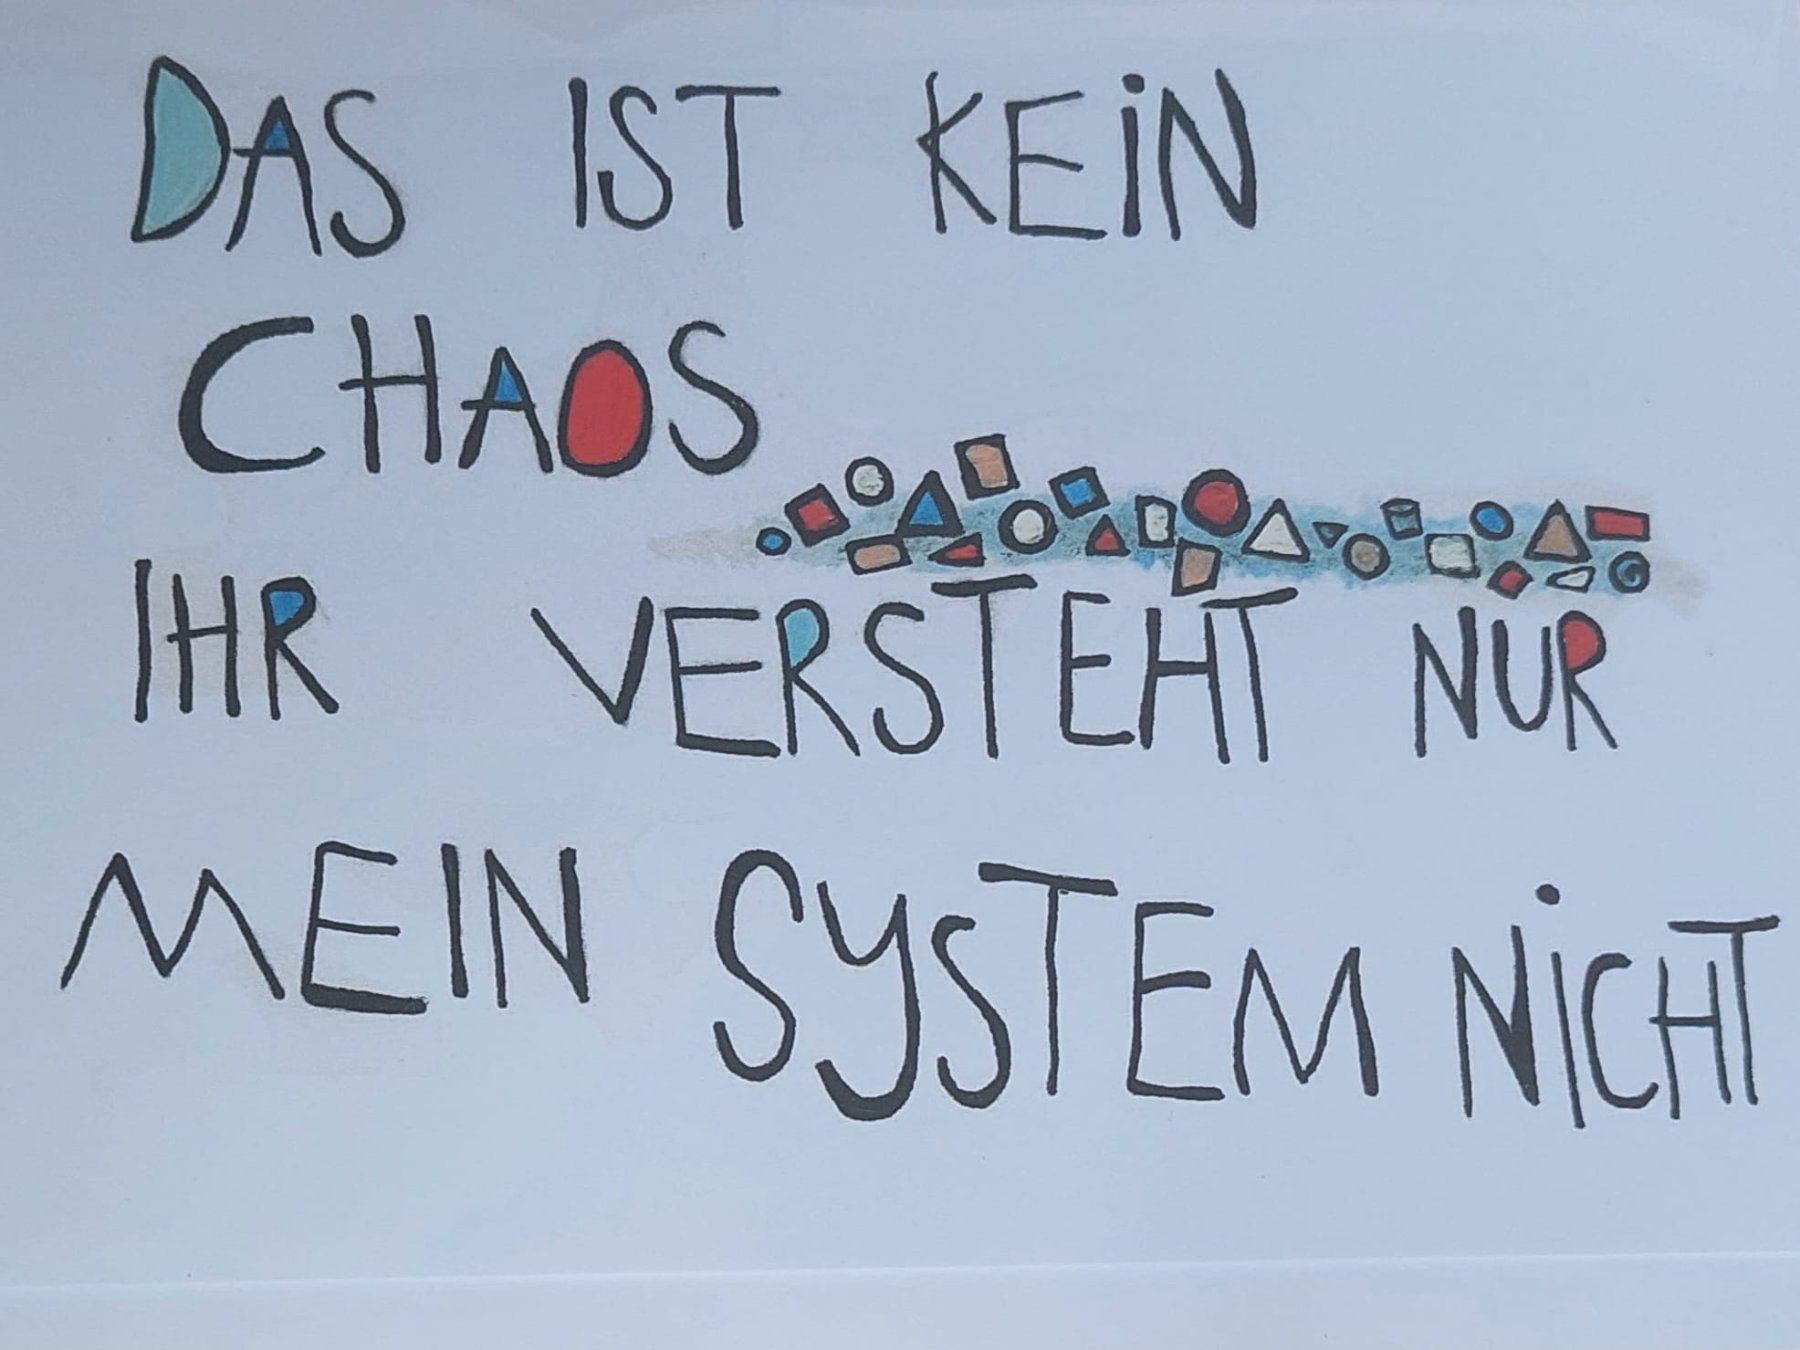 DAS IST KEIN
CHAOS
IHR VERSTEHT NUR
MEIN SYSTEM NICHT